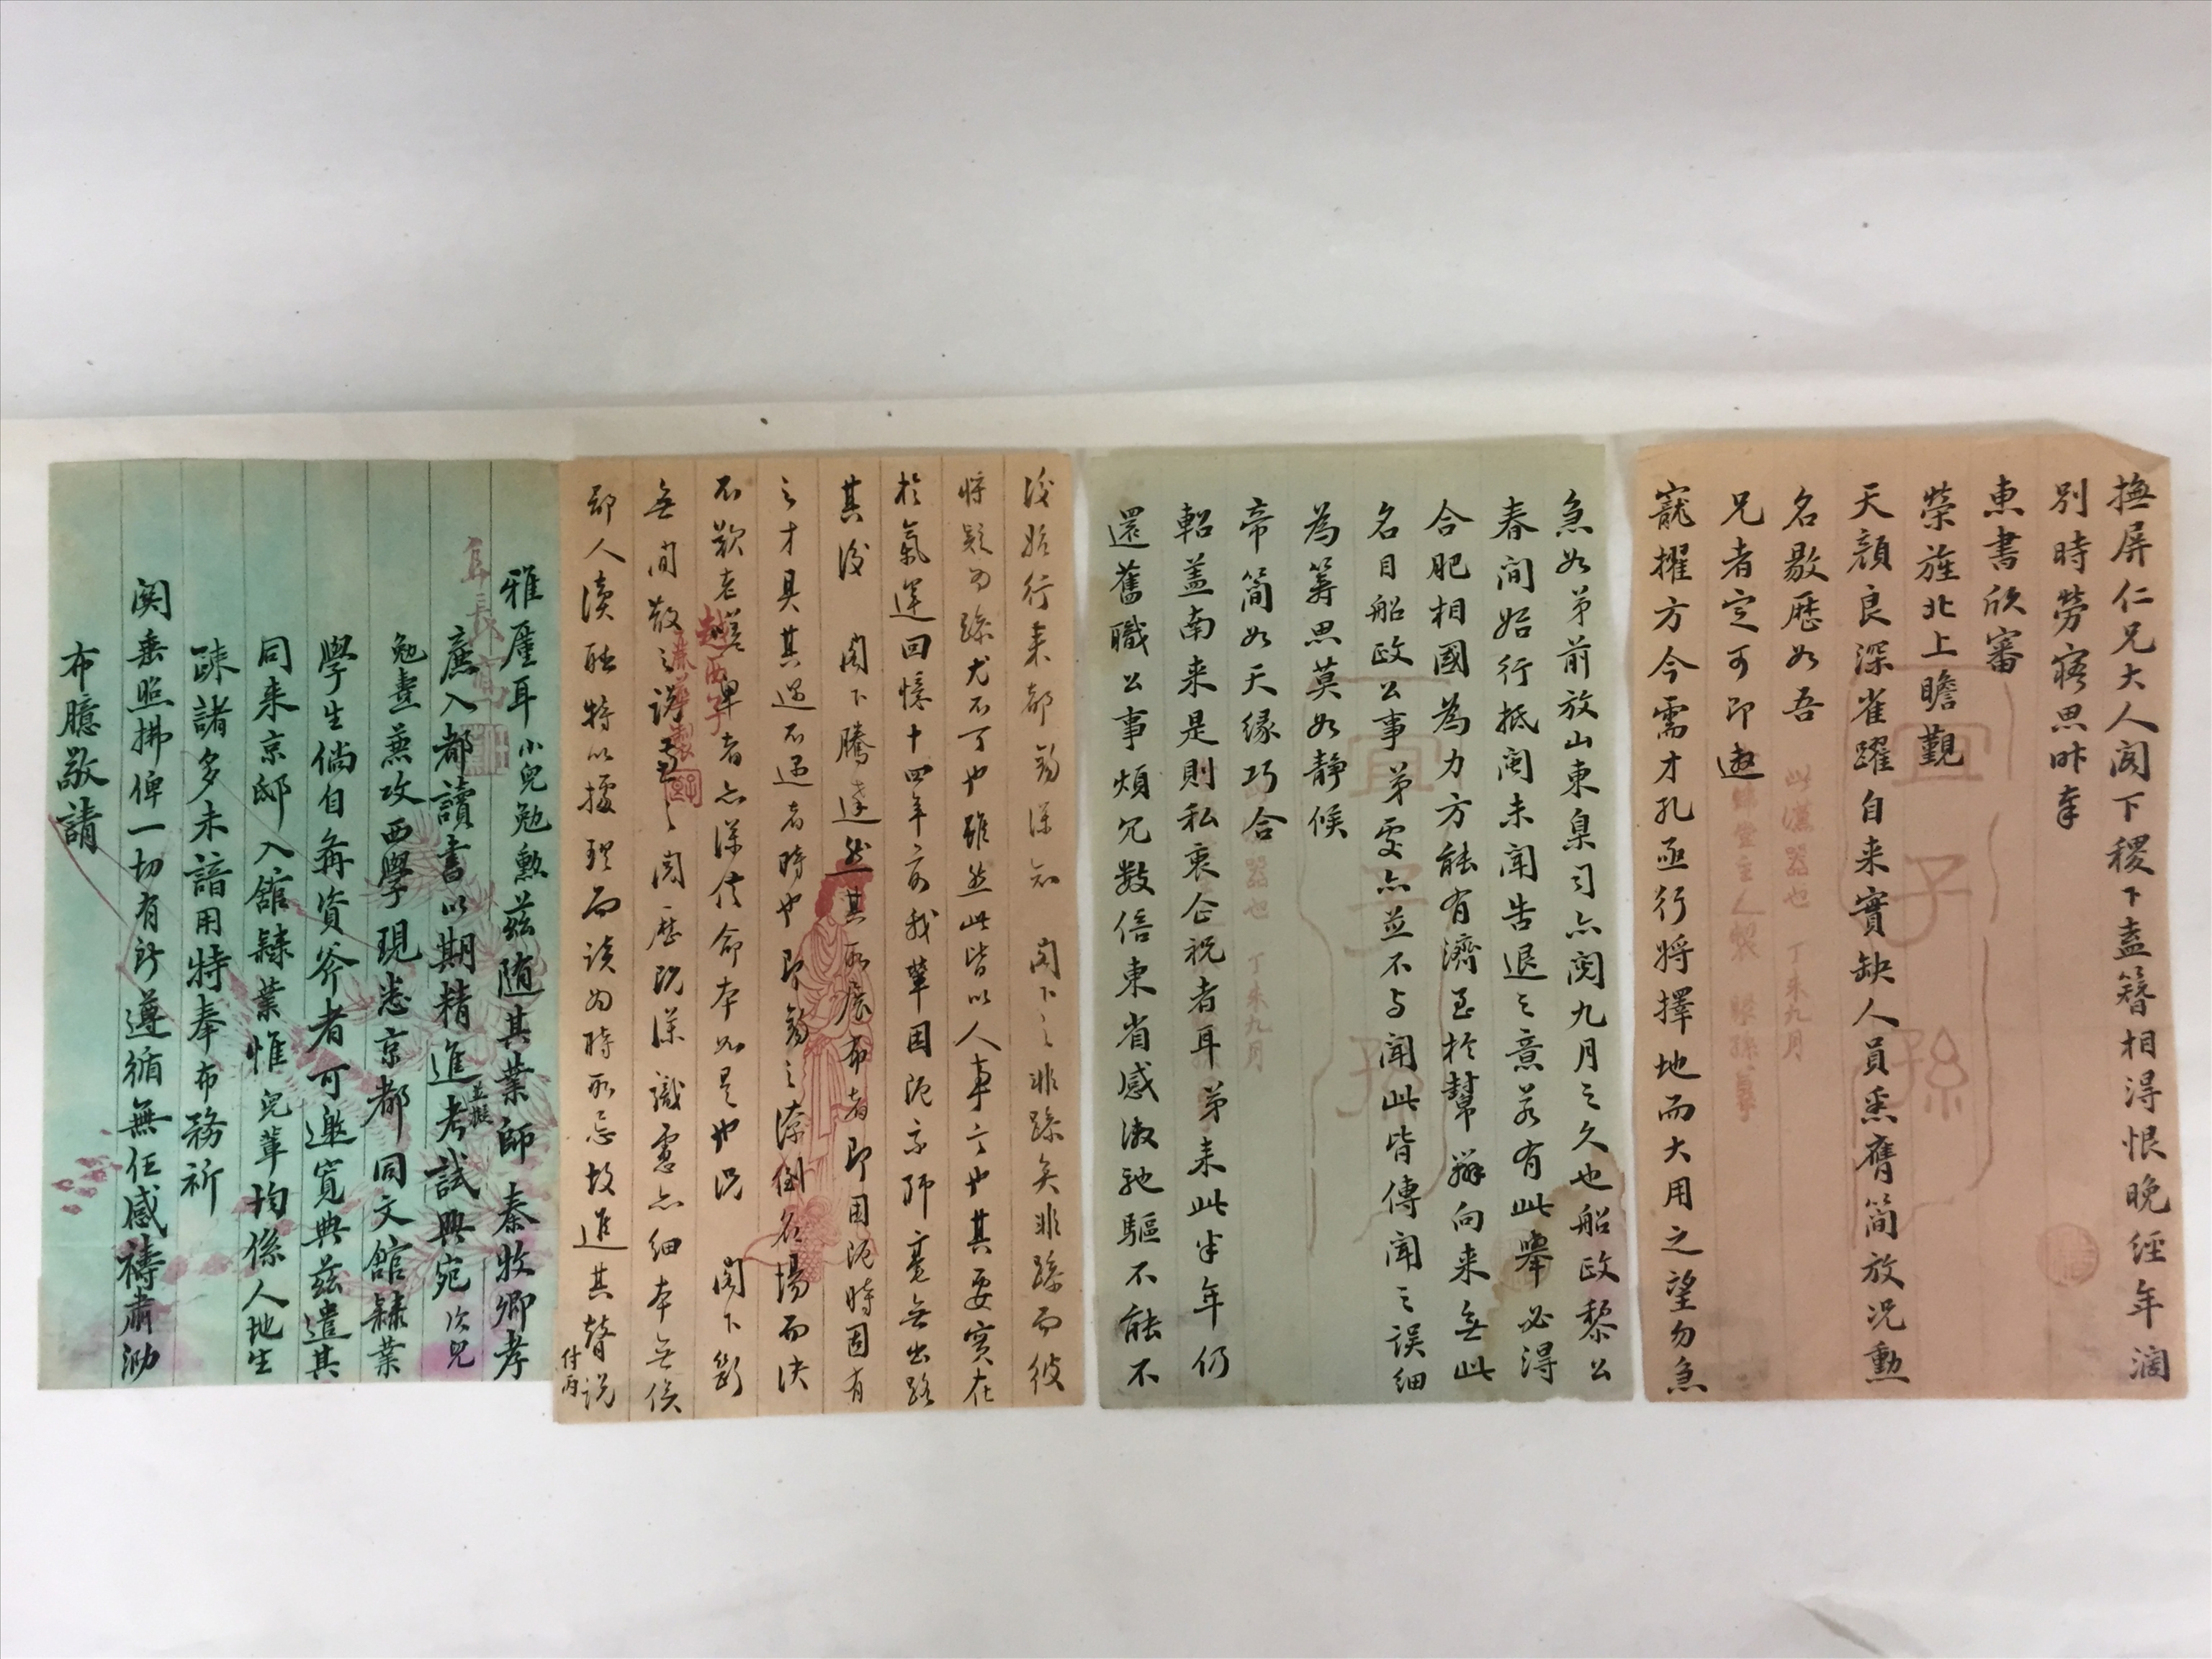 撫屏仁兄大人閣下稷下盍簪相得恨晚經年濶
別時勞寤思昨奉
惠書欣審
榮旌北上瞻覲
天顏良深雀躍自来實缺人員悉膺簡放况勳
名敭歷如吾
兄者定可即邀
寵擢方今需才孔亟行將擇地而大用之望勿急
急如弟前放山東臬司亦閱九月之久也船政黎公
春間始行抵閩未聞告退之意若有此舉必得
合肥相國為力方能有濟至於幫辦向来無此
名目船政公事弟處亦並不与聞此皆傳聞之誤細
為籌思莫如静候
帝簡如天緣巧合
軺盖南来是則私衷企祝者耳弟来此半年仍
還舊職公事煩冗數倍東省感激馳驅不能不
後始行来都 深知 閣下之非蹤矣非蹤而彼
將疑為蹤尤不可也雖然此皆以人事言也其要實在
於氣運回憶十四年前我輩困阨京師毫無出路
其後 閣下騰達然其所展布者即困阨時固有
之才具其遇不遇者時也即 之潦倒名場而決
不歎老嗟卑者亦深信命本如是也况 閣下
無閒散之 閱歷既深識慮亦細本無俟
鄙人瀆 特以據理而談為時所忌故進其瞽說
付丙
雅屋耳小兒勉勲茲随其業師 秦牧卿孝
廉入都讀書以期精進並擬考試與宛次兒
勉臺兼攻西學現悉京都同文館隸業
學生倘自備資斧者可邀寬典茲遣其
同来京邸入館隸業惟兒輩均係人地生
踈諸多未諳用特奉布務祈
関垂照拂俾一切有所遵循無任感禱肅泐
布臆敬請
宜子孫
此漢器也 丁未九月